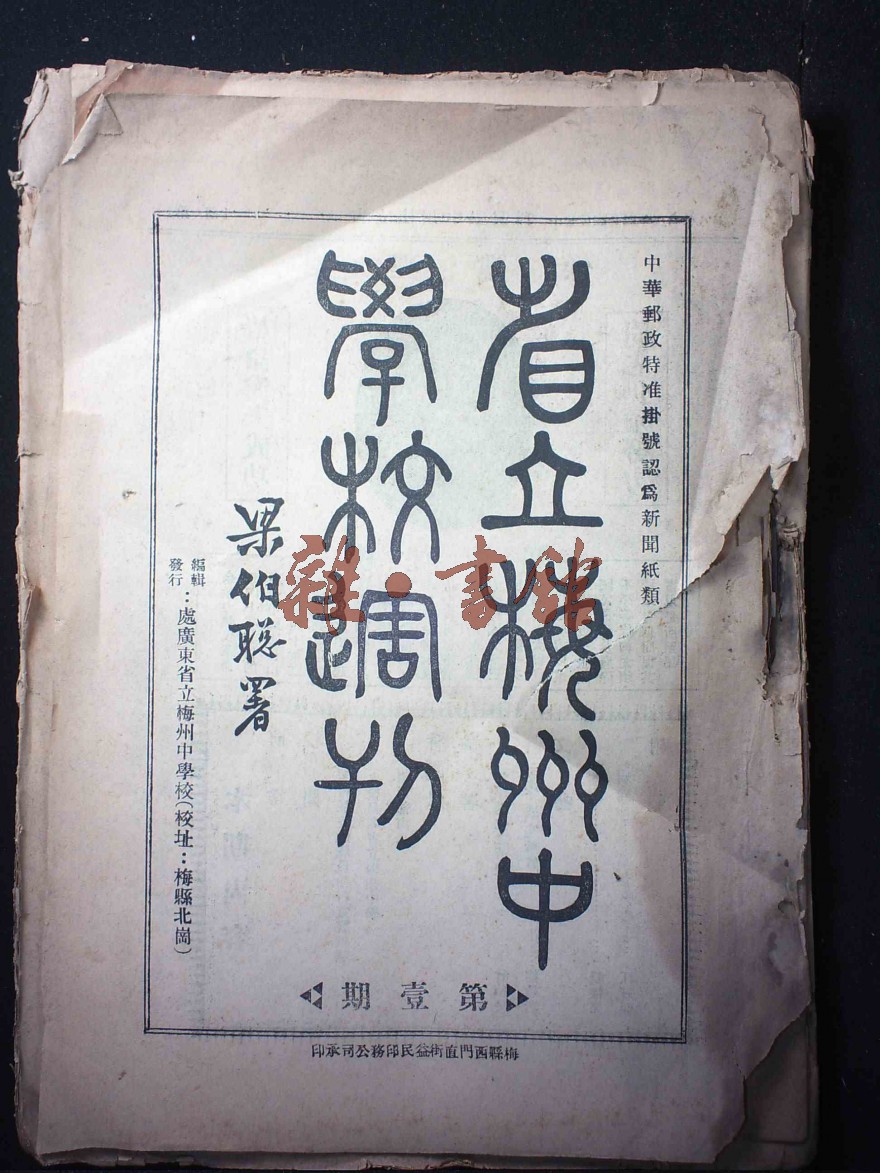 中華郵政特准掛號認爲新聞紙類
省立梅州中
學校週刊
梁伯聡署
編輯
發行
：處廣東省立梅州中學校（校址：梅縣北崗）
第壹期
梅縣西門直街益民印務公司承印
雜·書館